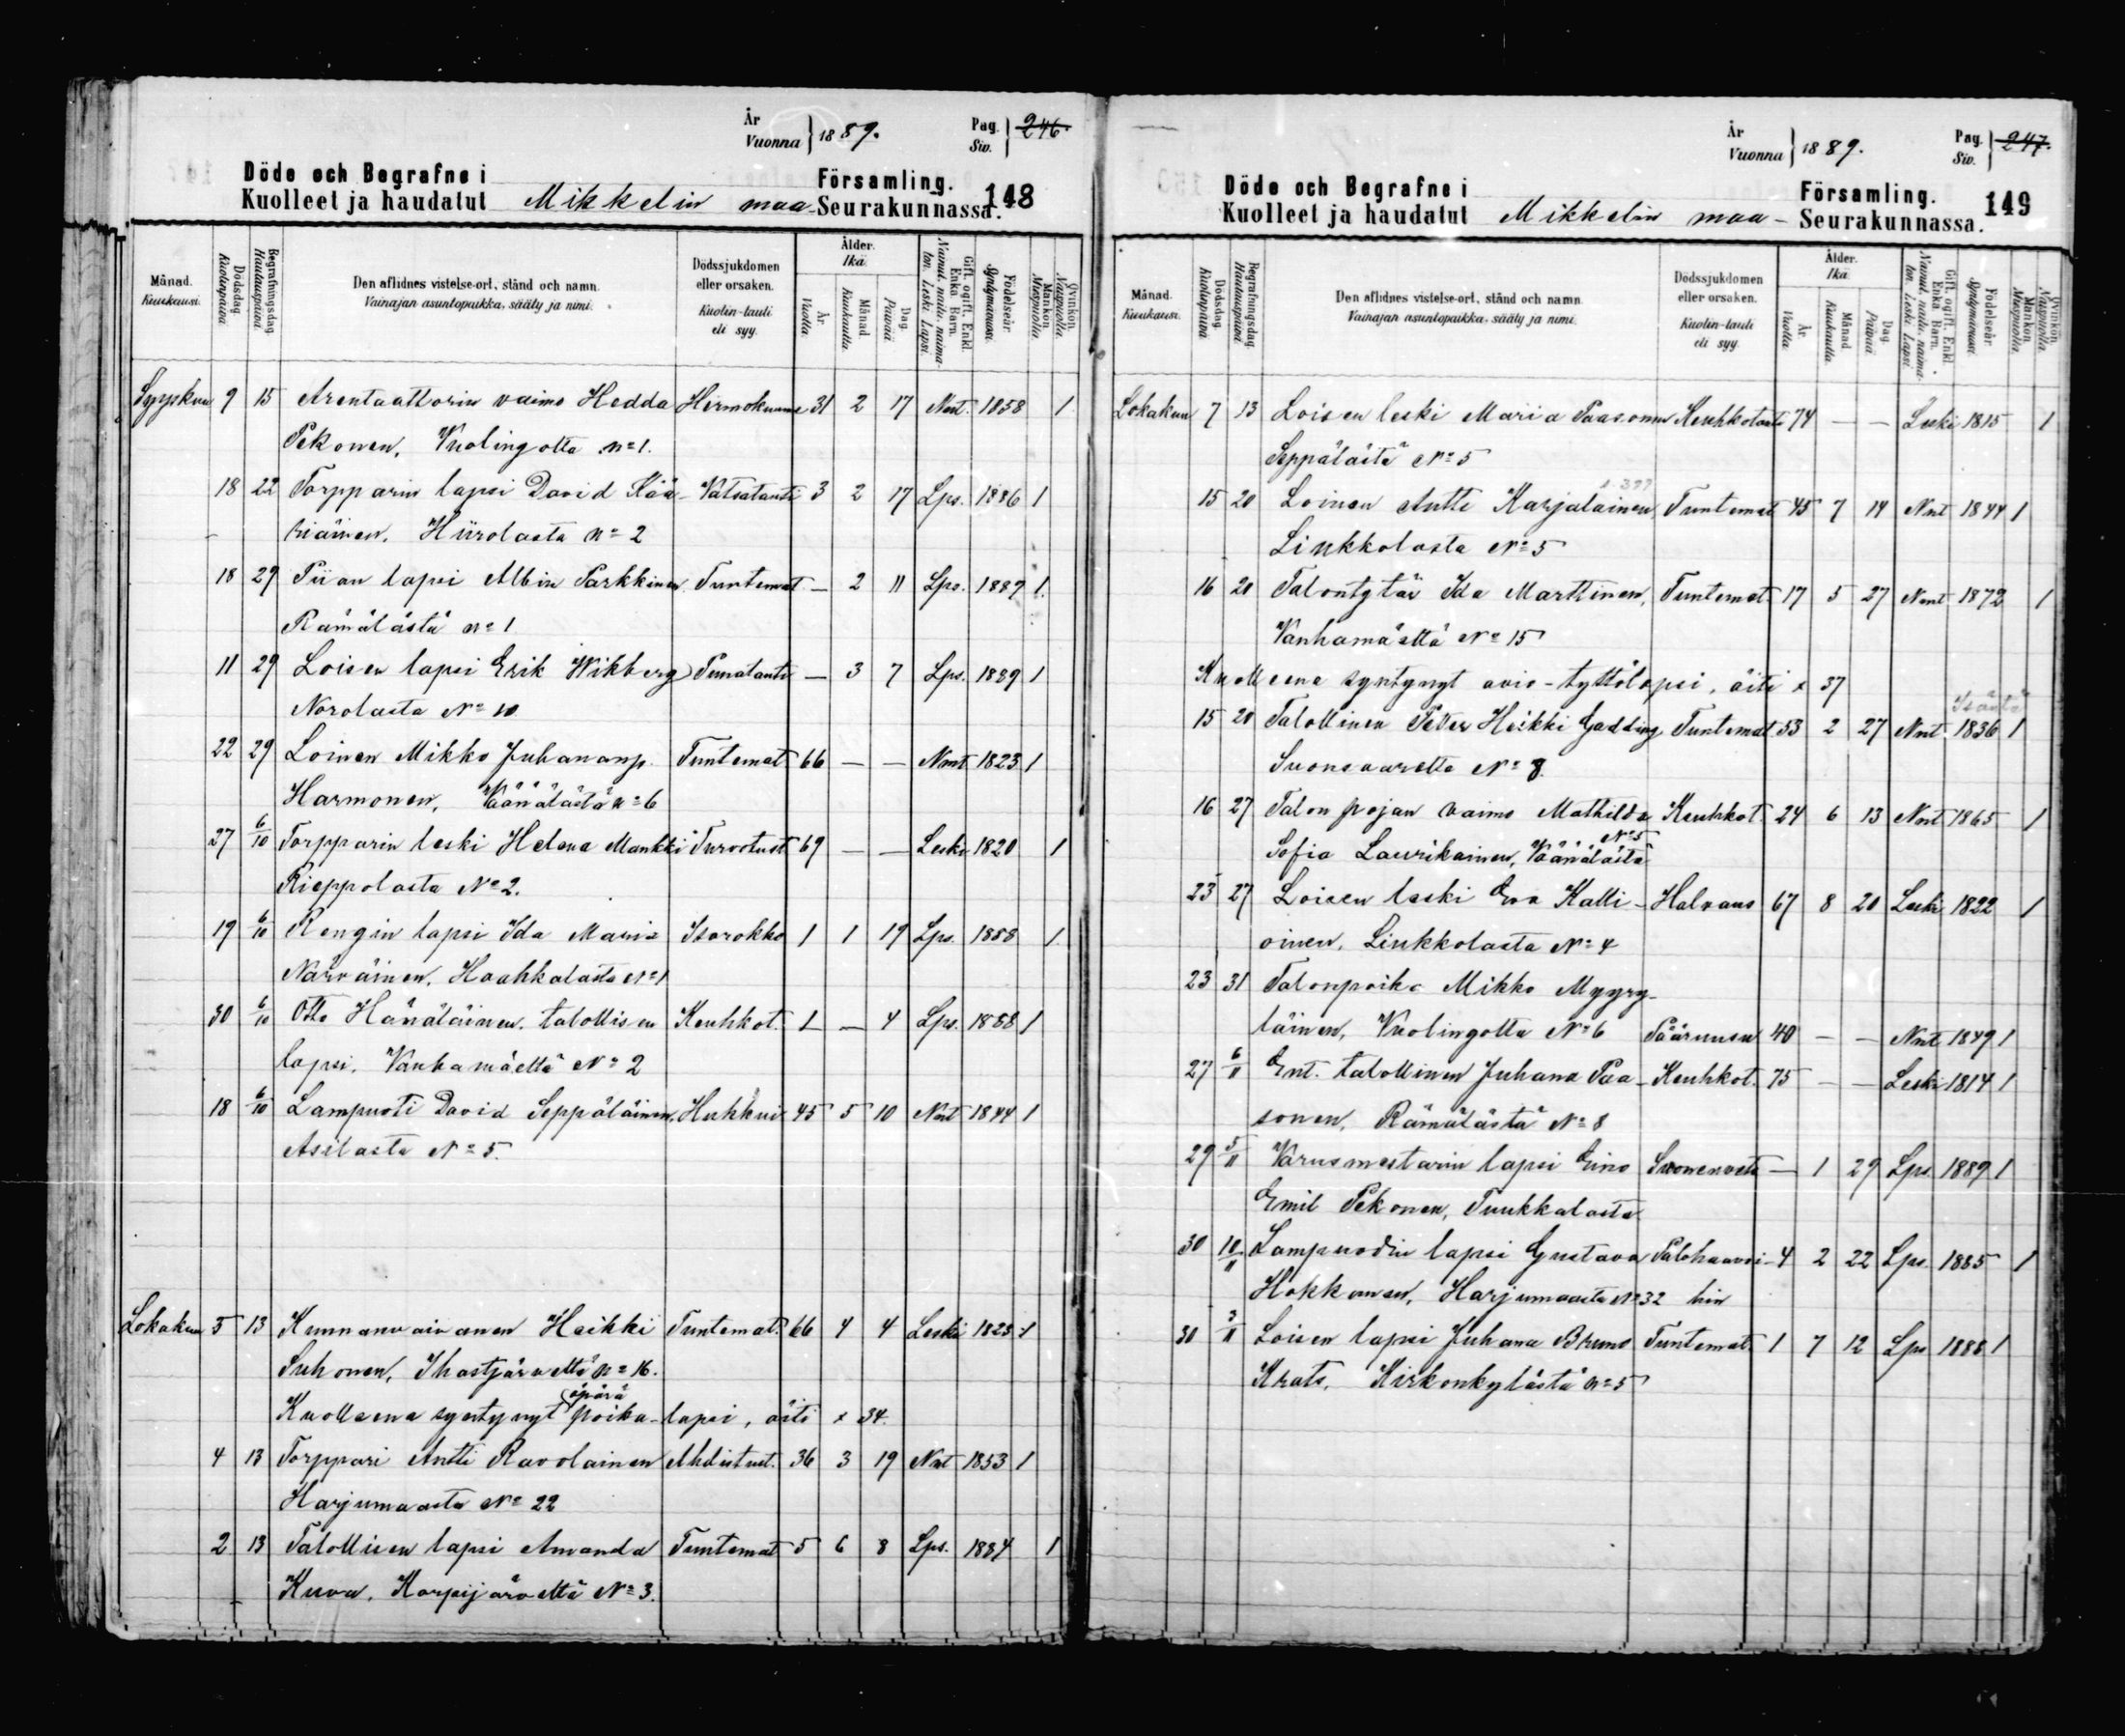 År
Vuonna } 1889.
Pag.
Siv. } 246.
Döde och Begrafne i
Kuolleet ja haudatut Mikkelin maa-
Församling.
Seurakunnassa.
148
Månad. Kuukausi.
Dödsdag. Kuolinpäivä.
Begrafningsdag. Hautauspäivä.
Den aflidnes vistelse-ort, stånd och namn.
Vainajan asuntopaikka, sääty ja nimi.
Dödssjukdomen eller orsaken.
Kuolin-tauti eli syy.
Ålder. Ikä.
År. Vuotta.
Månad. Kuukautta.
Dag. Päivää.
Gift, ogift, Enkl. Enka Barn.
Nainut, naima-ton. Leski. Lapsi.
Födelseår. Syntymävuosi.
Mankön. Miespuolia.
Qvinkön. Naispuolia.
Syyskuu 9 15 Arentaattorin vaimo Hedda Hermokuume 31 2 17 Nnt. 1858 1
Pekonen, Vuolingotta n=1.
18 22 Torpparin lapsi David Kää- Vatsatauti 3 2 17 Lps. 1886 1
riäinen. Hiirolasta n=2
18 29 Piian lapsi Albin Parkkinen Tuntemat. — 2 11 Lps. 1889 1.
Rämälästä n=1
11 29 Loisen lapsi Erik Wikberg Punatauti — 3 7 Lps. 1889 1
Norolasta N=10
22 29 Loinen Mikko Juhananp. Tuntemat 66 — — Nnt 1823 1
Harmonen, Väänälästä n=6
27 6/10 Torpparin leski Helena Mankki Turvotust 69 — — Leski 1820 1
Rieppolasta N=2.
19 6/10 Rengin lapsi Ida Maria Isorokko 1 1 19 Lps. 1888 1.
Närväinen. Haahkalasta N=1
30 6/10 Otto Hänäläinen, talollisen Keuhkot. 1 — 4 Lps. 1888 1
lapsi. Vanhamäeltä N=2
18 6/10 Lampuoti David Seppäläinen, Hukkui 45 5 10 Nnt 1844 1
Asilasta N=5.
Lokakuu 5 13 Kunnanvaivanen Heikki Tuntemat. 66 4 4 Leski 1823 1
Suhonen, Ihastjärveltä n=16.
äpärä
Kuolleena syntynyt poika-lapsi, äiti x 34.
4 13 Torppari Antti Ravolainen Ahdistust. 36 3 19 Nnt 1853 1
Harjumaasta N=22
2 13 Talollisen lapsi Amanda Tuntemat 5 6 8 Lps. 1884 1
Kuva. Korpijärveltä N=3.
År
Vuonna } 1889.
Pag.
Siv. } 247.
Döde och Begrafne i
Kuolleet ja haudatut Mikkelin maa-
Församling.
Seurakunnassa.
149
Månad. Kuukausi.
Dödsdag. Kuolinpäivä.
Begrafningsdag. Hautauspäivä.
Den aflidnes vistelse-ort, stånd och namn.
Vainajan asuntopaikka, sääty ja nimi.
Dödssjukdomen eller orsaken.
Kuolin-tauti eli syy.
Ålder. Ikä.
År. Vuotta.
Månad. Kuukautta.
Dag. Päivää.
Gift, ogift, Enkl. Enka Barn.
Nainut, naima-ton. Leski. Lapsi.
Födelseår. Syntymävuosi.
Mankön. Miespuolia.
Qvinkön. Naispuolia.
Lokakuu 7 13 Loisen leski Maria Paasonen Keuhkotauti 74 — — Leski 1815 1
Seppälästä N=5
15 20 Loinen Antti Karjalainen, Tuntemat 45 7 14 Nnt 1844 1
Liukkolasta N=5
16 20 Talontytär Ida Marttinen, Tuntemat 17 5 27 Nmt 1872 1
Vanhamäeltä N=15
Kuolleena syntynyt avio-tyttölapsi, äiti x 37
15 20 Talollinen Petter Heikki Gadding Tuntemat 53 2 27 Nnt 1836 1
Suonsaarelta N=8.
16 27 Talon pojan vaimo Mathilda Keuhkot 24 6 13 Nnt 1865 1
Sofia Laurikainen, Väänälästä N=5
23 27 Loisen leski Eva Kalli- Halvaus 67 8 20 Leski 1822 1
oinen, Liukkolasta N=4
23 31 Talonpoika Mikko Myyry-
läinen, Vuolingotta N=6 Pääruusu 40 — — Nnt 1849 1
27 6/11 Ent. talollinen Juhana Paa- Keuhkot. 75 — — Leski 1814 1
sonen, Rämälästä N=8
29 5/11 Varusmestarin lapsi Eino Suonenveto — 1 29 Lps. 1889 1
Emil Pekonen, Tuukkalasta
30 10/11 Lampuodin lapsi Gustava Palohaavoi- 4 2 22 Lps. 1885 1
Hokkanen, Harjumaasta N=32 hin
30 3/11 Loisen lapsi Juhana Bruno Tuntemat. 1 7 12 Lps 1888 1
Krats. Kirkonkylästä n=5